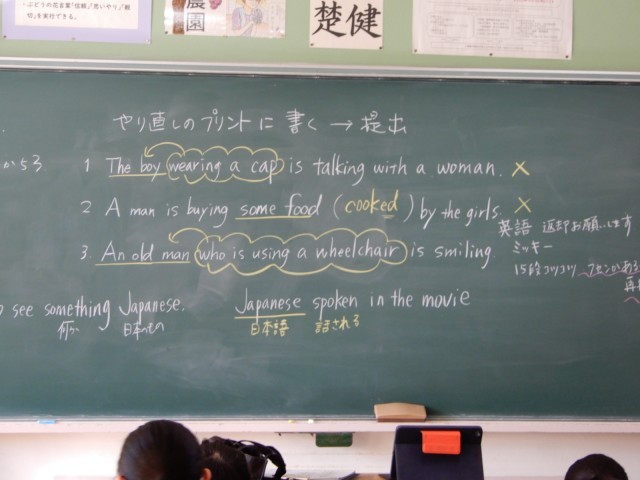 ぶどうの花言葉「信頼」「思いやり」「親
切」を実行できる。
農園
楚健
やり直しのプリントに 書く → 提出
から3
1 The boy wearing a cap is talking with a woman. ×
2 A man is buying some food (cooked) by the girls. ×
3. An old man who is using a wheelchair is smiling.
英語 返却お願いします
ミッキー
15段コツコツ
see something Japanese.
何か 日本のもの
Japanese spoken in the movie
日本語 話される